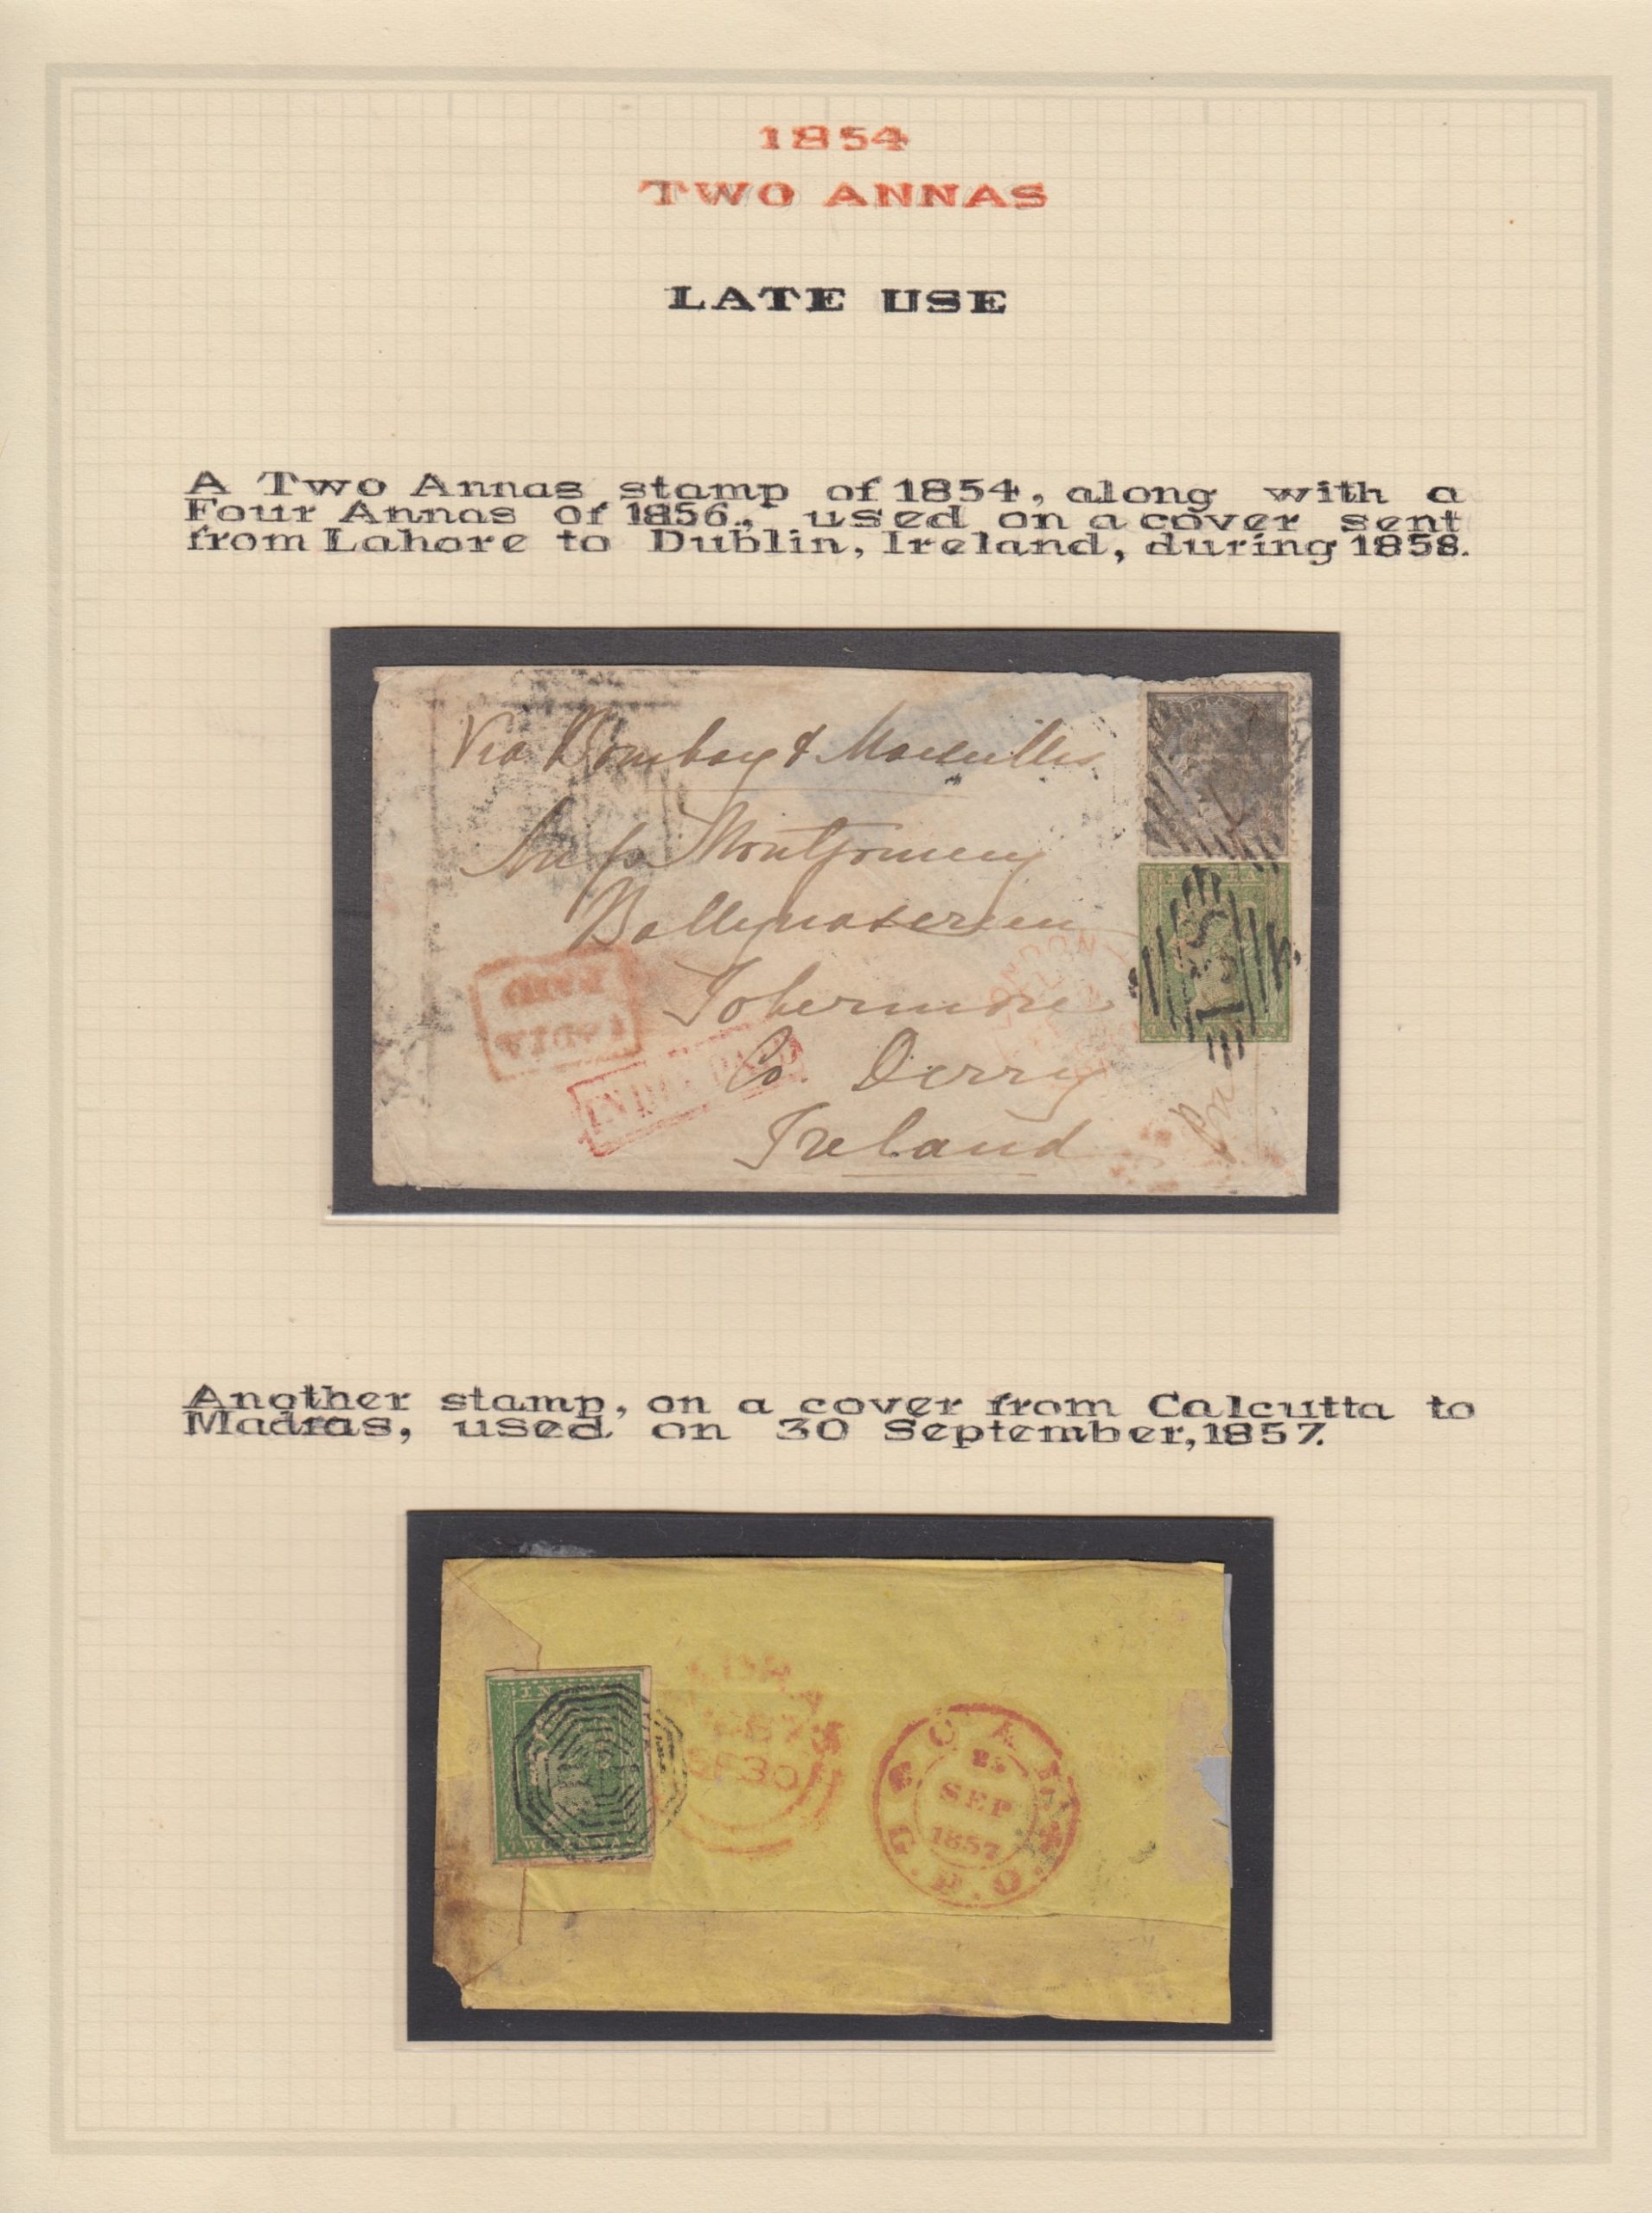 1854
TWO ANNAS
LATE USE
A Two Annas stamp of 1854, along with a
Four Annas of 1856., used on a cover sent
from Lahore to Dublin, Ireland, during 1858.
Via Bombay & Marseilles
Montgomery
INDIA
Tobermore
INDIA PAID
Co. Derry
Ireland
Another stamp, on a cover from Calcutta to
Madras, used on 30 September, 1857.
INDIA
TWO ANNAS
SE 30
25
SEP
1857
G.P.O.